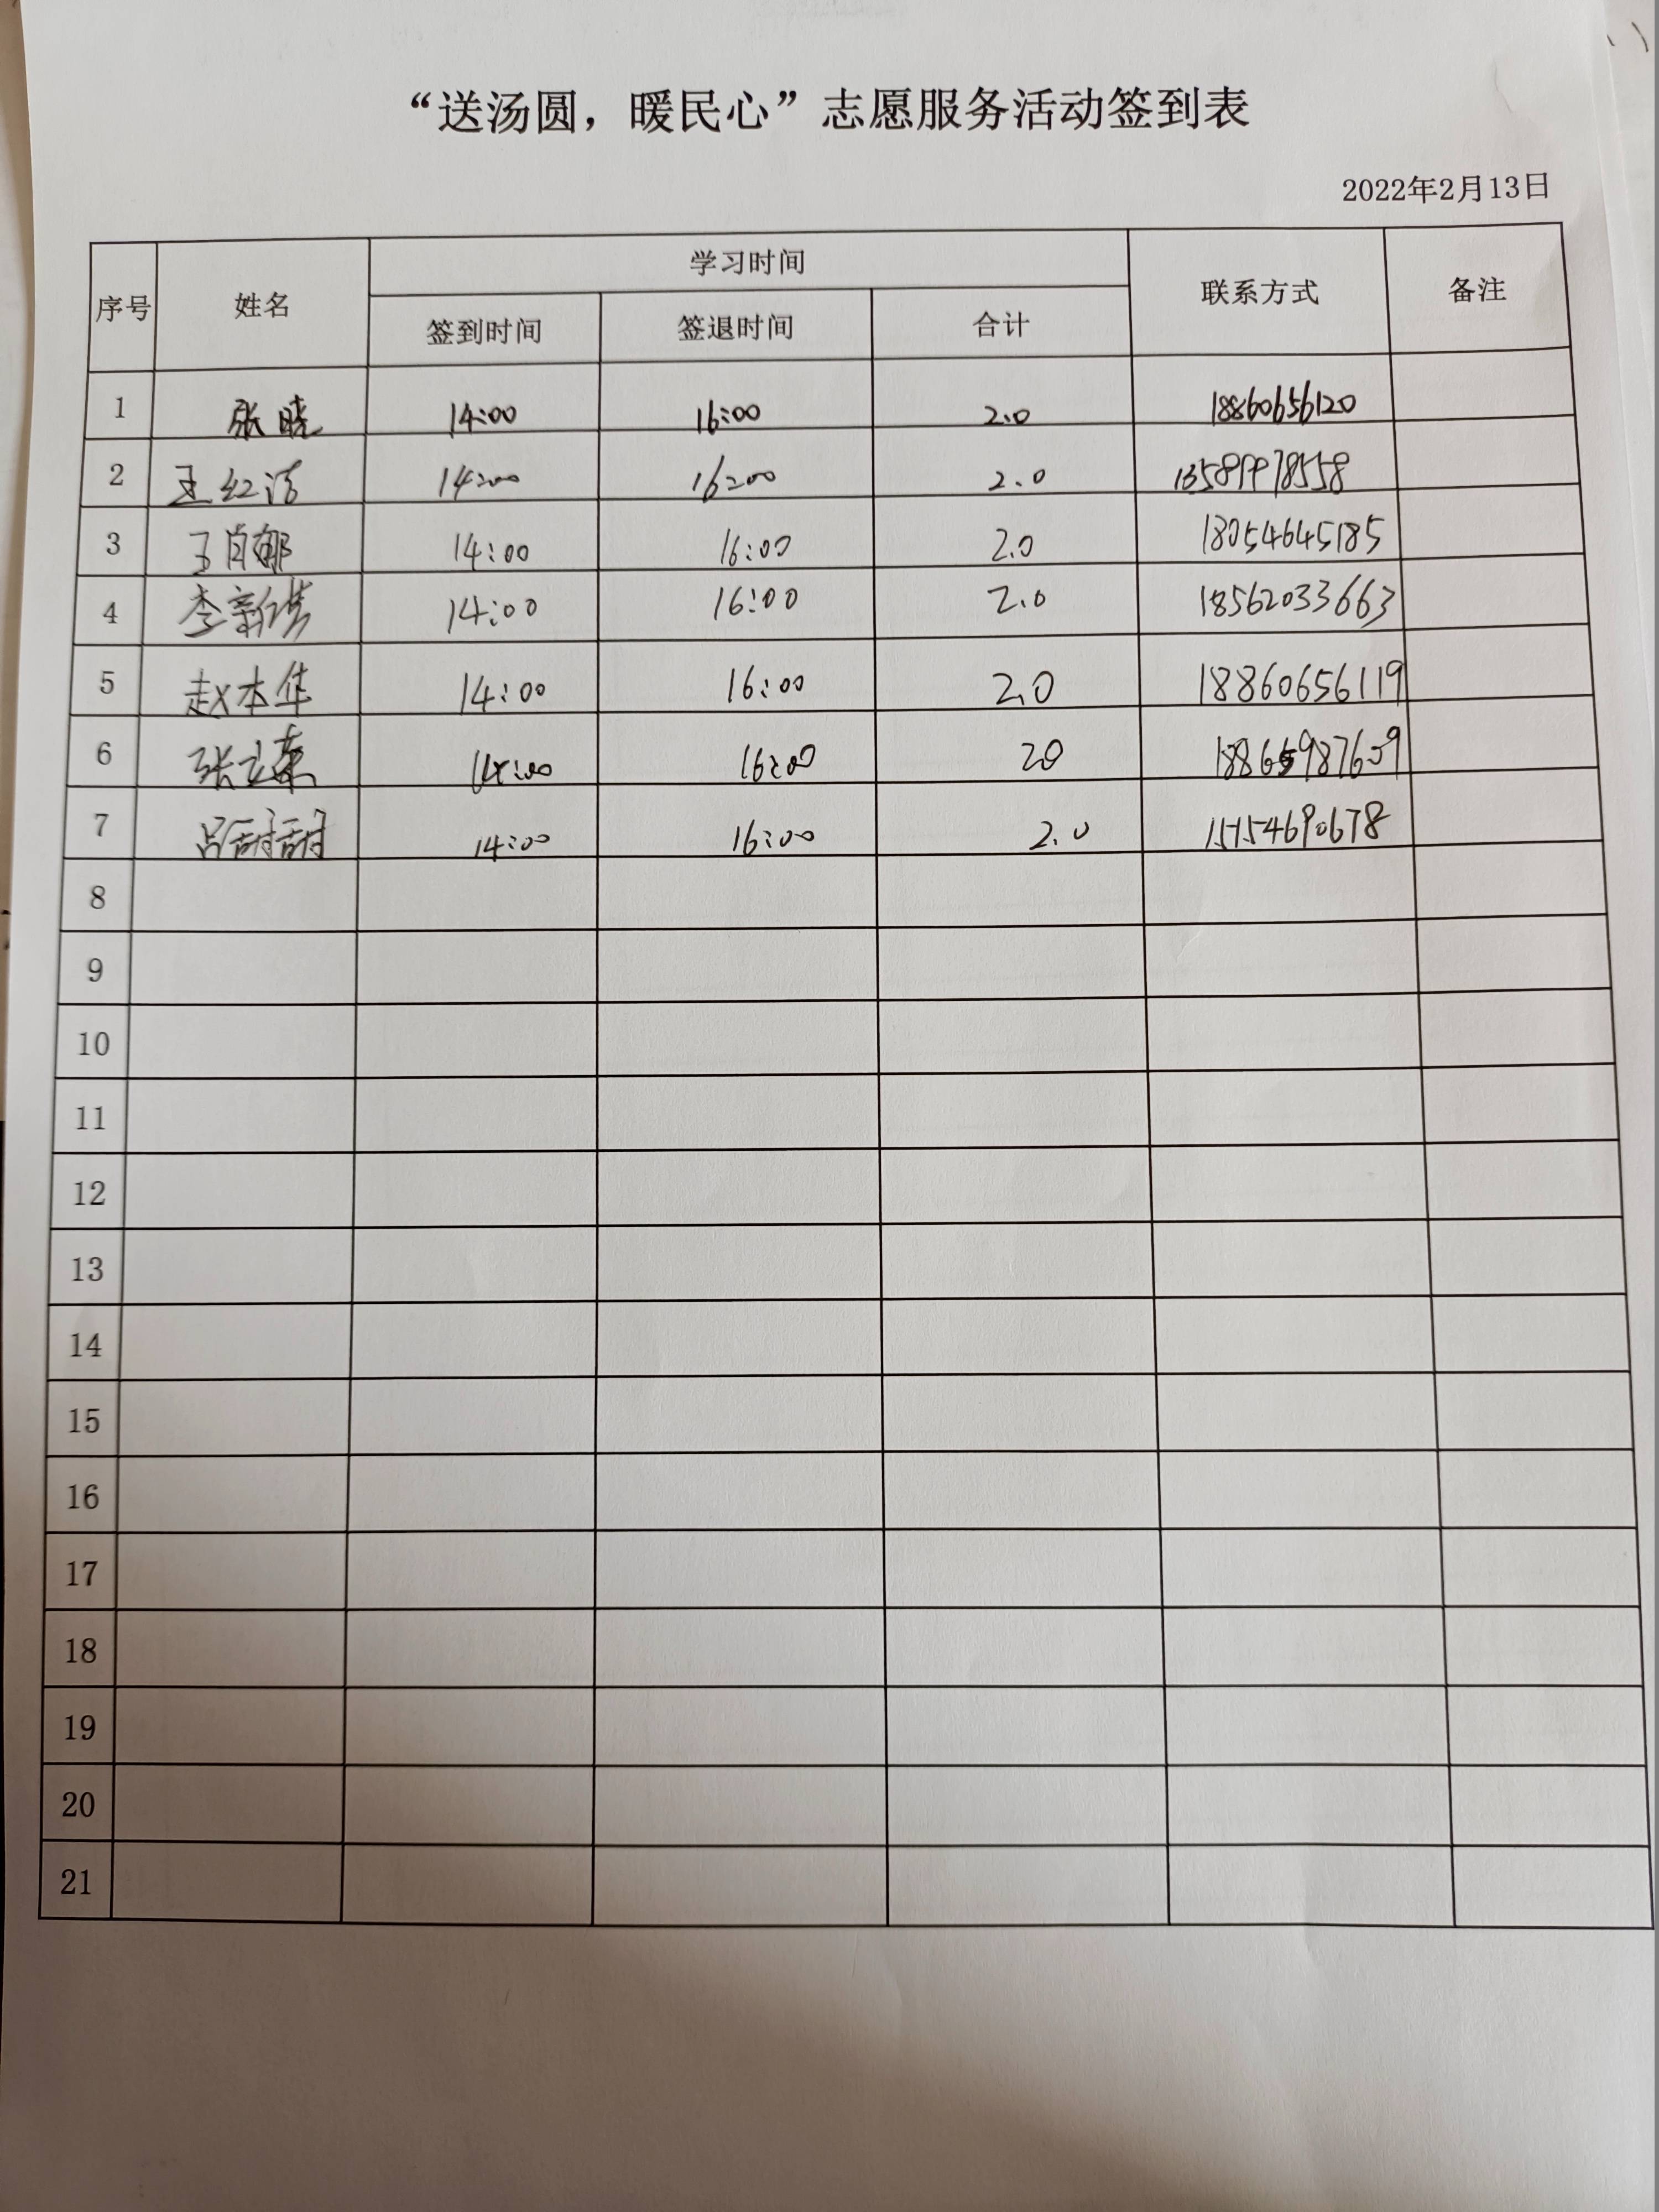 “送汤圆，暖民心”志愿服务活动签到表
2022年2月13日
序号 姓名 学习时间 联系方式 备注
签到时间 签退时间 合计
1 张晓 14:00 16:00 2.0 18860656120
2 王红洁 14:00 16:00 2.0 13589978558
3 王肖娜 14:00 16:00 2.0 18054645185
4 李新 14:00 16:00 2.0 18562033663
5 赵本华 14:00 16:00 2.0 18860656119
6 张立荣 14:00 16:00 20 18865987609
7 吕甜甜 14:00 16:00 2.0 15154690678
8
9
10
11
12
13
14
15
16
17
18
19
20
21